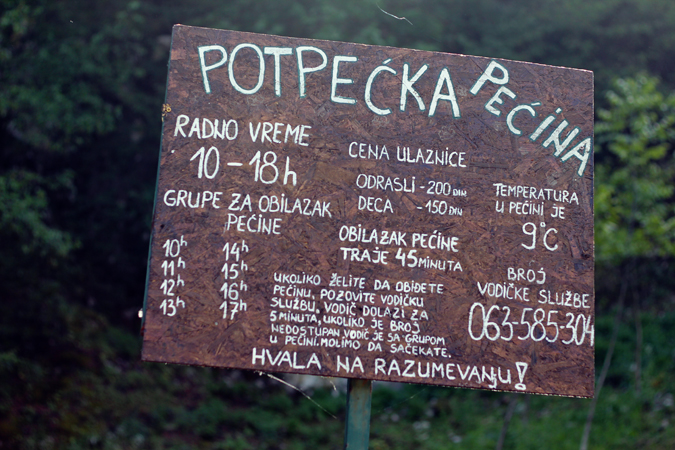 POTPEĆKA PEĆINA
RADNO VREME
10-18h
GRUPE ZA OBILAZAK
PEĆINE
10h 14h
11h 15h
12h 16h
13h 17h
CENA ULAZNICE
ODRASLI - 200 DIN
DECA - 150 DIN
OBILAZAK PEĆINE
TRAJE 45 MINUTA
TEMPERATURA
U PEĆINI JE
9°C
BROJ
VODIČKE SLUŽBE
063-585-304
UKOLIKO ŽELITE DA OBIĐETE
PEĆINU, POZOVITE VODIČKU
SLUŽBU, VODIČ DOLAZI ZA
5 MINUTA, UKOLIKO JE BROJ
NEDOSTUPAN VODIČ JE SA GRUPOM
U PEĆINI. MOLIMO DA SAČEKATE.
HVALA NA RAZUMEVANJU!